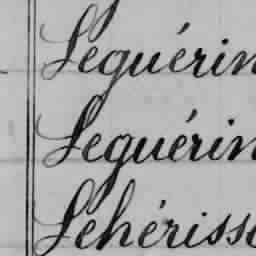 Leguérin
Leguérin
Lehériss